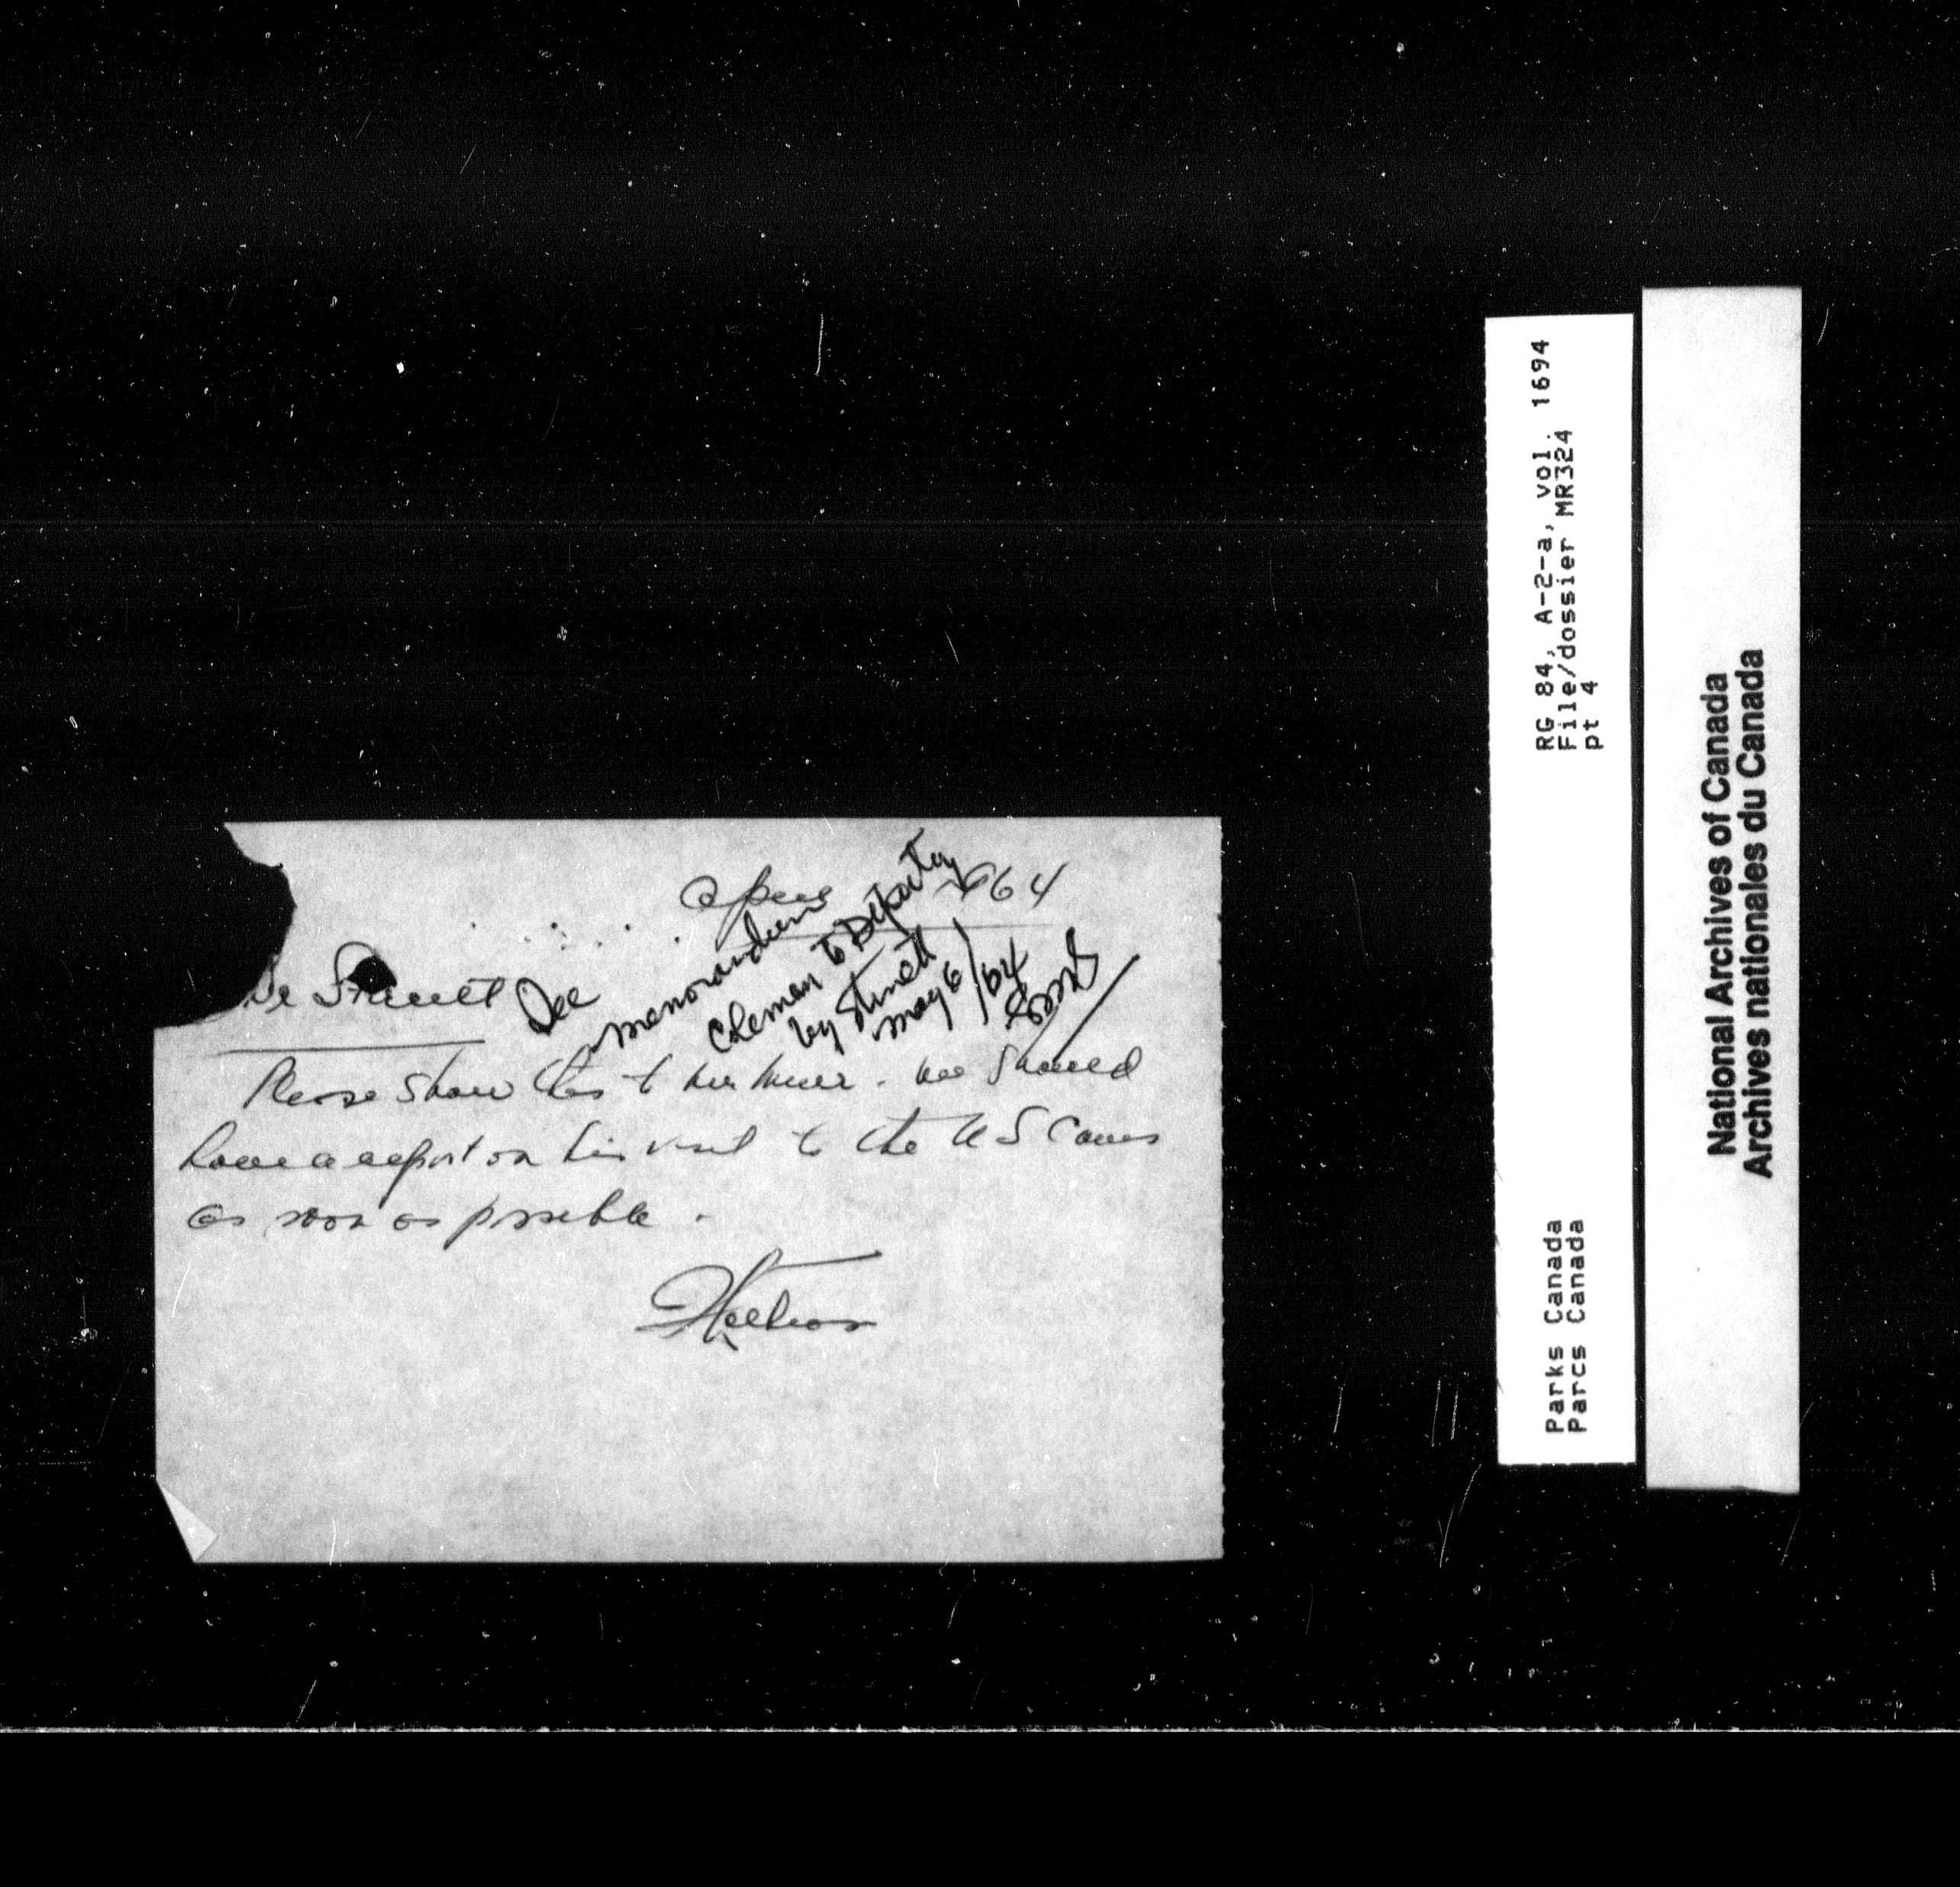 April 1964
Mr Stinett
See
memorandum
Coleman to Deputy
by Stinett
May 6/64
Please show this to Mr . We should
have a report on his visit to the U S Caves
as soon as possible.
RG 84, A-2-a, vol. 1694
File/dossier MR324
pt 4
Parks Canada
Parcs Canada
National Archives of Canada
Archives nationales du Canada